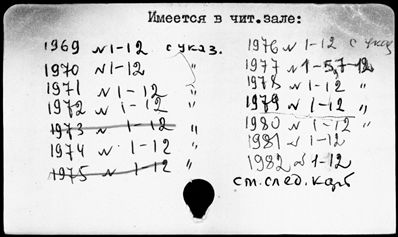 Имеется в чит.зале:
1969 N 1-12 с указ.
1970 N 1-12 "
1971 N 1-12 "
1972 N 1-12 "
1973 N 1-12 "
1974 N 1-12 "
1975 N 1-12 "
1976 N 1-12 с указ
1977 N 1-5,7-12
1978 N 1-12 "
1979 N 1-12 "
1980 N 1-12 "
1981 N 1-12
1982 N 1-12
см.след.карт